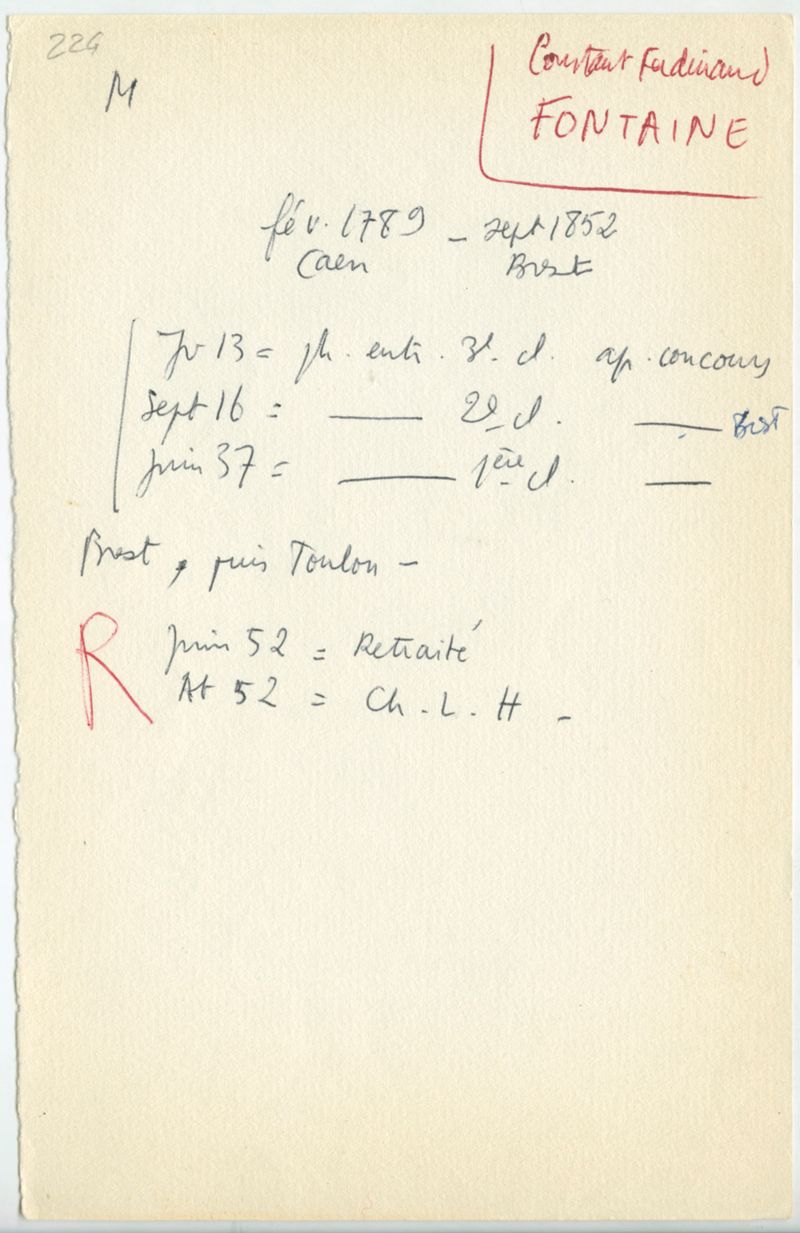 224
M
Constant Ferdinand
FONTAINE
fév. 1789 - sept 1852
Caen Brest
Jv 13 = ph. entr. 3e. cl. ap. concours
Sept 16 = —— 2e cl. —— Brest
juin 37 = —— 1ère cl. ——
Brest, puis Toulon -
R juin 52 = Retraité
At 52 = Ch. L. H -